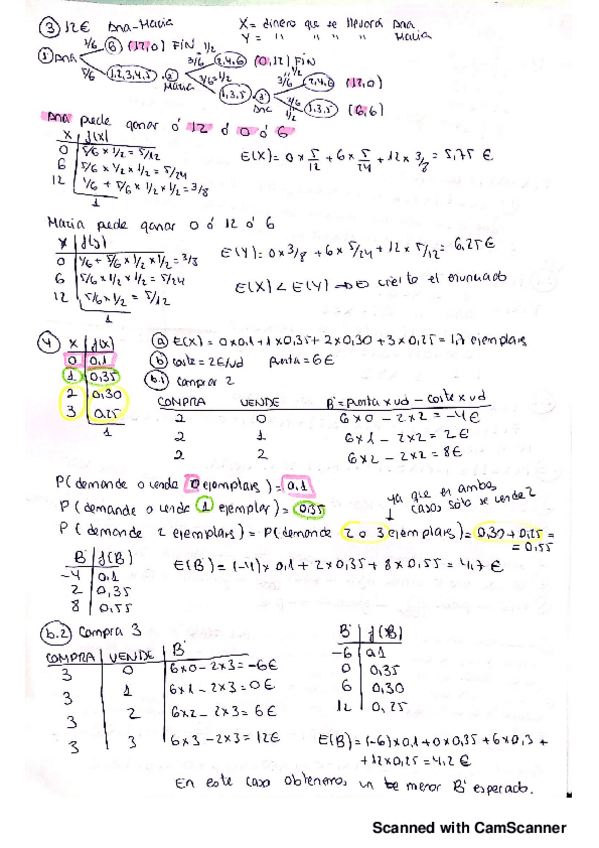 ③ 12€ Ana-María X = dinero que se llevará Ana
Y = " " " " " María
① Ana 1/6 ⑥ (12,0) FIN
5/6 1,2,3,4,5 ② María 3/6=1/2 2,4,6 (0,12) FIN
3/6=1/2 1,3,5 ③ Ana 3/6=1/2 2,4,6 (12,0)
3/6=1/2 1,3,5 (6,6)
Ana puede ganar ó 12 ó 0 ó 6
X f(x)
0 5/6 x 1/2 = 5/12
6 5/6 x 1/2 x 1/2 = 5/24
12 1/6 + 5/6 x 1/2 x 1/2 = 3/8
1
E(X) = 0 x 5/12 + 6 x 5/24 + 12 x 3/8 = 5,75 €
María puede ganar 0 ó 12 ó 6
0 1/6 + 5/6 x 1/2 x 1/2 = 3/8
6 5/6 x 1/2 x 1/2 = 5/24
12 5/6 x 1/2 = 5/12
1
E(Y) = 0 x 3/8 + 6 x 5/24 + 12 x 5/12 = 6,25€
E(X) < E(Y) → cierto el enunciado
④ X f(x)
0 0,1
1 0,35
2 0,30
3 0,25
1
ⓐ E(X) = 0x0,1 + 1x0,35 + 2x0,30 + 3x0,25 = 1,7 ejemplars
ⓑ coste = 2€/ud punta = 6€
b.1 Comprar 2
COMPRA VENDE Bº = punta x ud - coste x ud
2 0 6x0 - 2x2 = -4€
2 1 6x1 - 2x2 = 2€
2 2 6x2 - 2x2 = 8€
P(demande o venda 0 ejemplars) = 0,1
P(demande o venda 1 ejemplar) = 0,35
ya que en ambos casos sólo se vende 2
P(demande 2 ejemplars) = P(demande 2 o 3 ejemplars) = 0,30 + 0,25 =
= 0,55
Bº f(B)
-4 0,1
2 0,35
8 0,55
E(B) = (-4) x 0,1 + 2 x 0,35 + 8 x 0,55 = 4,7 €
b.2 Compra 3
COMPRA VENDE Bº
3 0 6x0 - 2x3 = -6€
3 1 6x1 - 2x3 = 0€
3 2 6x2 - 2x3 = 6€
3 3 6x3 - 2x3 = 12€
Bº f(B)
-6 0,1
0 0,35
6 0,30
12 0,25
E(B) = (-6)x0,1 + 0x0,35 + 6x0,3 +
+ 12x0,25 = 4,2 €
En este caso obtenemos un menor Bº esperado.
Scanned with CamScanner